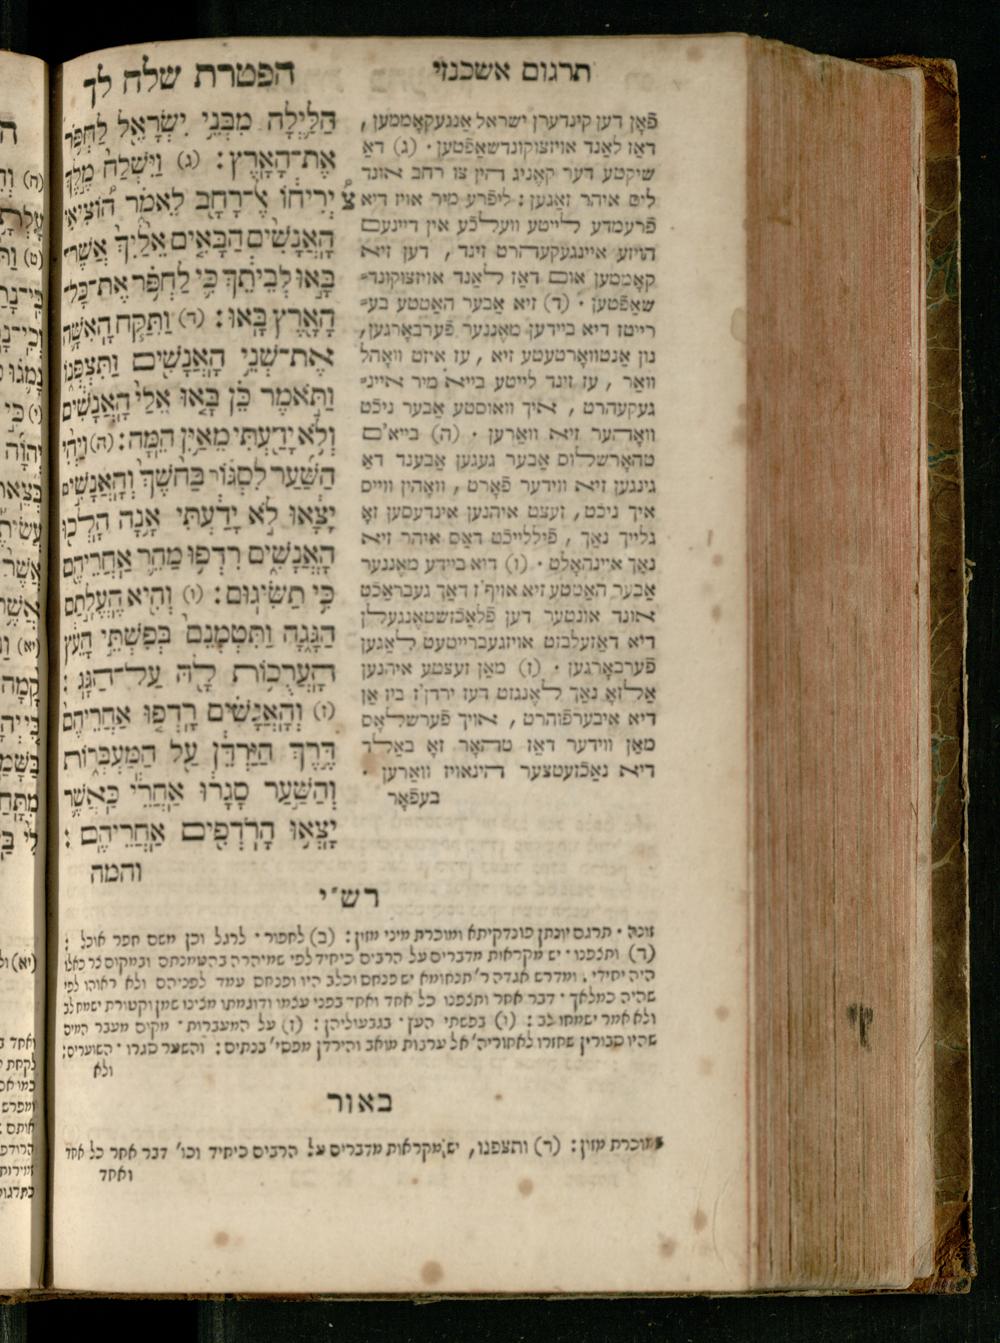 תרגום אשכנזי
הפטרת שלח לך
הַלַּיְלָה מִבְּנֵי יִשְׂרָאֵל לַחְפֹּר
אֶת־הָאָרֶץ : (ג) וַיִּשְׁלַח מֶלֶךְ
יְרִיחוֹ אֶל־רָחָב לֵאמֹר הוֹצִיאִי
הָאֲנָשִׁים הַבָּאִים אֵלַיִךְ אֲשֶׁר־
בָּאוּ לְבֵיתֵךְ כִּי לַחְפֹּר אֶת־כָּל־
הָאָרֶץ בָּאוּ : (ד) וַתִּקַּח הָאִשָּׁה
אֶת־שְׁנֵי הָאֲנָשִׁים וַתִּצְפְּנוֹ
וַתֹּאמֶר כֵּן בָּאוּ אֵלַי הָאֲנָשִׁים
וְלֹא יָדַעְתִּי מֵאַיִן הֵמָּה : (ה) וַיְהִי
הַשַּׁעַר לִסְגּוֹר בַּחֹשֶׁךְ וְהָאֲנָשִׁים
יָצָאוּ לֹא יָדַעְתִּי אָנָה הָלְכוּ
הָאֲנָשִׁים רִדְפוּ מַהֵר אַחֲרֵיהֶם
כִּי תַשִּׂיגוּם : (ו) וְהִיא הֶעֱלָתַם
הַגָּגָה וַתִּטְמְנֵם בְּפִשְׁתֵּי הָעֵץ
הָעֲרֻכוֹת לָהּ עַל־הַגָּג :
(ז) וְהָאֲנָשִׁים רָדְפוּ אַחֲרֵיהֶם
דֶּרֶךְ הַיַּרְדֵּן עַל הַמַּעְבְּרוֹת
וְהַשַּׁעַר סָגָרוּ אַחֲרֵי כַּאֲשֶׁר
יָצְאוּ הָרֹדְפִים אַחֲרֵיהֶם :
והמה
פֿאָן דען קינדערן ישראל אַנגעקאָממען ,
דאַז לאַנד אויזצוקונדשאַפֿטען . (ג) דאַ
שיקטע דער קאָניג דהין צו רחב אונד
ליס איהר זאָגען : ליפֿרע מיר אויז דיא
פֿרעמדע לייטע וועלכֿע אין דיינעם
הויזע איינגעקעהרט זינד , דען זיא
קאָממען אום דאַז לאַנד אויזצוקונד־
שאַפֿטען . (ד) זיא אַבער האַטטע בע־
רייטז דיא ביידען מאֶננער פֿערבאָרגען,
נון אַנטוואָרטעטע זיא , עז איזט וואָהל
וואַר , עז זינד לייטע בייא מיר איינ־
געקעהרט , איך וואוסטע אַבער ניכֿט
וואָהער זיא וואַרען . (ה) בייא'ם
טהאָרשלוס אַבער געגען אַבענד דאַ
גינגען זיא ווידער פֿאָרט , וואָהין ווייס
איך ניכֿט , זעצט איהנען אינדעסען זאָ
גלייך נאָך , פֿיללייכֿט דאַס איהר זיא
נאָך איינהאָלט . (ו) דיא ביידע מאֶננער
אַבער האַטטע זיא אויף'ז דאַך געבראַכֿט
אונד אונטער דען פֿלאַכֿזשטאֶנגעלן
דיא דאַזעלבזט אויזגעברייטעט לאַגען
פֿערבאָרגען . (ז) מאַן זעצטע איהנען
אַלזאָ נאָך לאֶנגזט דעז ירדן'ז ביז אַן
דיא איבערפֿוהרט , אויך פֿערשלאָס
מאַן ווידער דאַז טהאָר זאָ באַלד
דיא נאַכֿזעטצער הינאויז וואַרען .
בעפֿאָר
רש״י
זונה . תרגם יונתן פונדקיתא ומוכרת מיני מזון : (ב) לחפור . לרגל וכן משם חפר אוכל :
(ד) ותצפנו . יש מקראות מדברים על הרבים כיחיד לפי שמיהרה בהטמנתם ובמקום צר כאלו
היה יחידי . ומדרש אגדה ר' תנחומא יש פנחס וכלב היו ופנחס עמד לפניהם ולא ראוהו לפי
שהיה כמלאך . דבר אחר ותצפנו כל אחד ואחד בפני עצמו ודוגמתו מצינו שמן וקטורת ישמח לב
ולא אמר ישמחו לב : (ו) בפשתי העץ . בגבעוליהן : (ז) על המעברות . מקום מעבר המים
שהיו סבורין שחזרו לאחוריה' אל ערבות מואב והירדן מפסי' בנתים : והשער סגרו . השוערים :
ולא
באור
מוכרת מזון : (ד) ותצפנו , יש מקראות מדברים על הרבים כיחיד וכו' דבר אחר כל אחד
ואחד